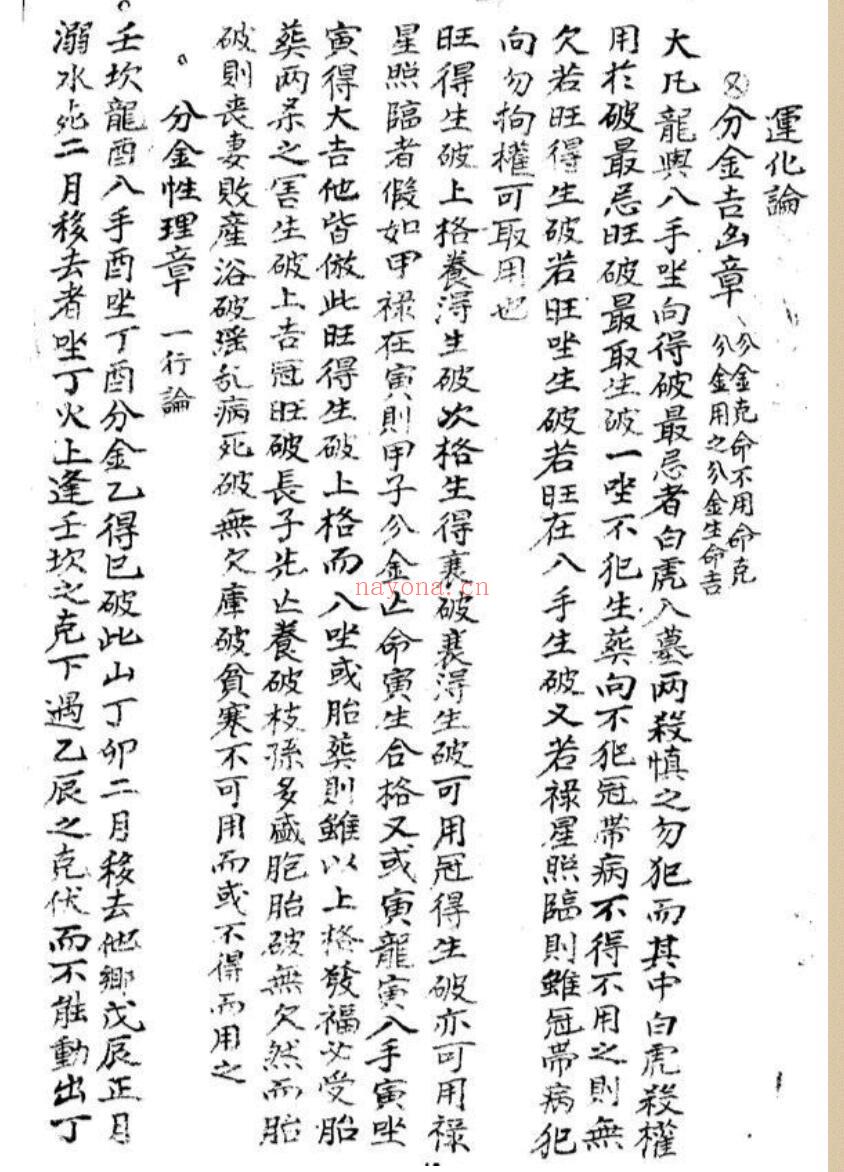 運化論
分金吉凶章
分金克命不用命克
分金用之分金生命吉
大凡龍與八手坐向得破最忌者白虎入墓两殺慎之勿犯而其中白虎殺權
用於破最忌旺破最取生破一坐不犯生葬向不犯冠帶病不得不用之則無
欠若旺得生破若旺坐生破若旺在八手生破又若禄星照臨則雖冠帶病犯
向勿拘權可取用也
旺得生破上格養得生破次格生得衰破衰得生破可用冠得生破亦可用禄
星照臨者假如甲禄在寅則甲子分金亡命寅生合格又或寅龍寅八手寅坐
寅得大吉他皆倣此旺得生破上格而八坐或胎葬則雖以上格發福必受胎
葬两杀之害生破上吉冠旺破長子先亡養破枝孫多盛胞胎破無欠然而胎
破則喪妻敗產浴破淫乱病死破無欠庫破貧寒不可用而或不得而用之
分金性理章 一行論
壬坎龍酉八手酉坐丁酉分金乙得巳破此山丁卯二月移去他鄉戊辰正月
溺水死二月移去者坐丁火上逢壬坎之克下遇乙辰之克伏而不能動出丁
nayona.cn